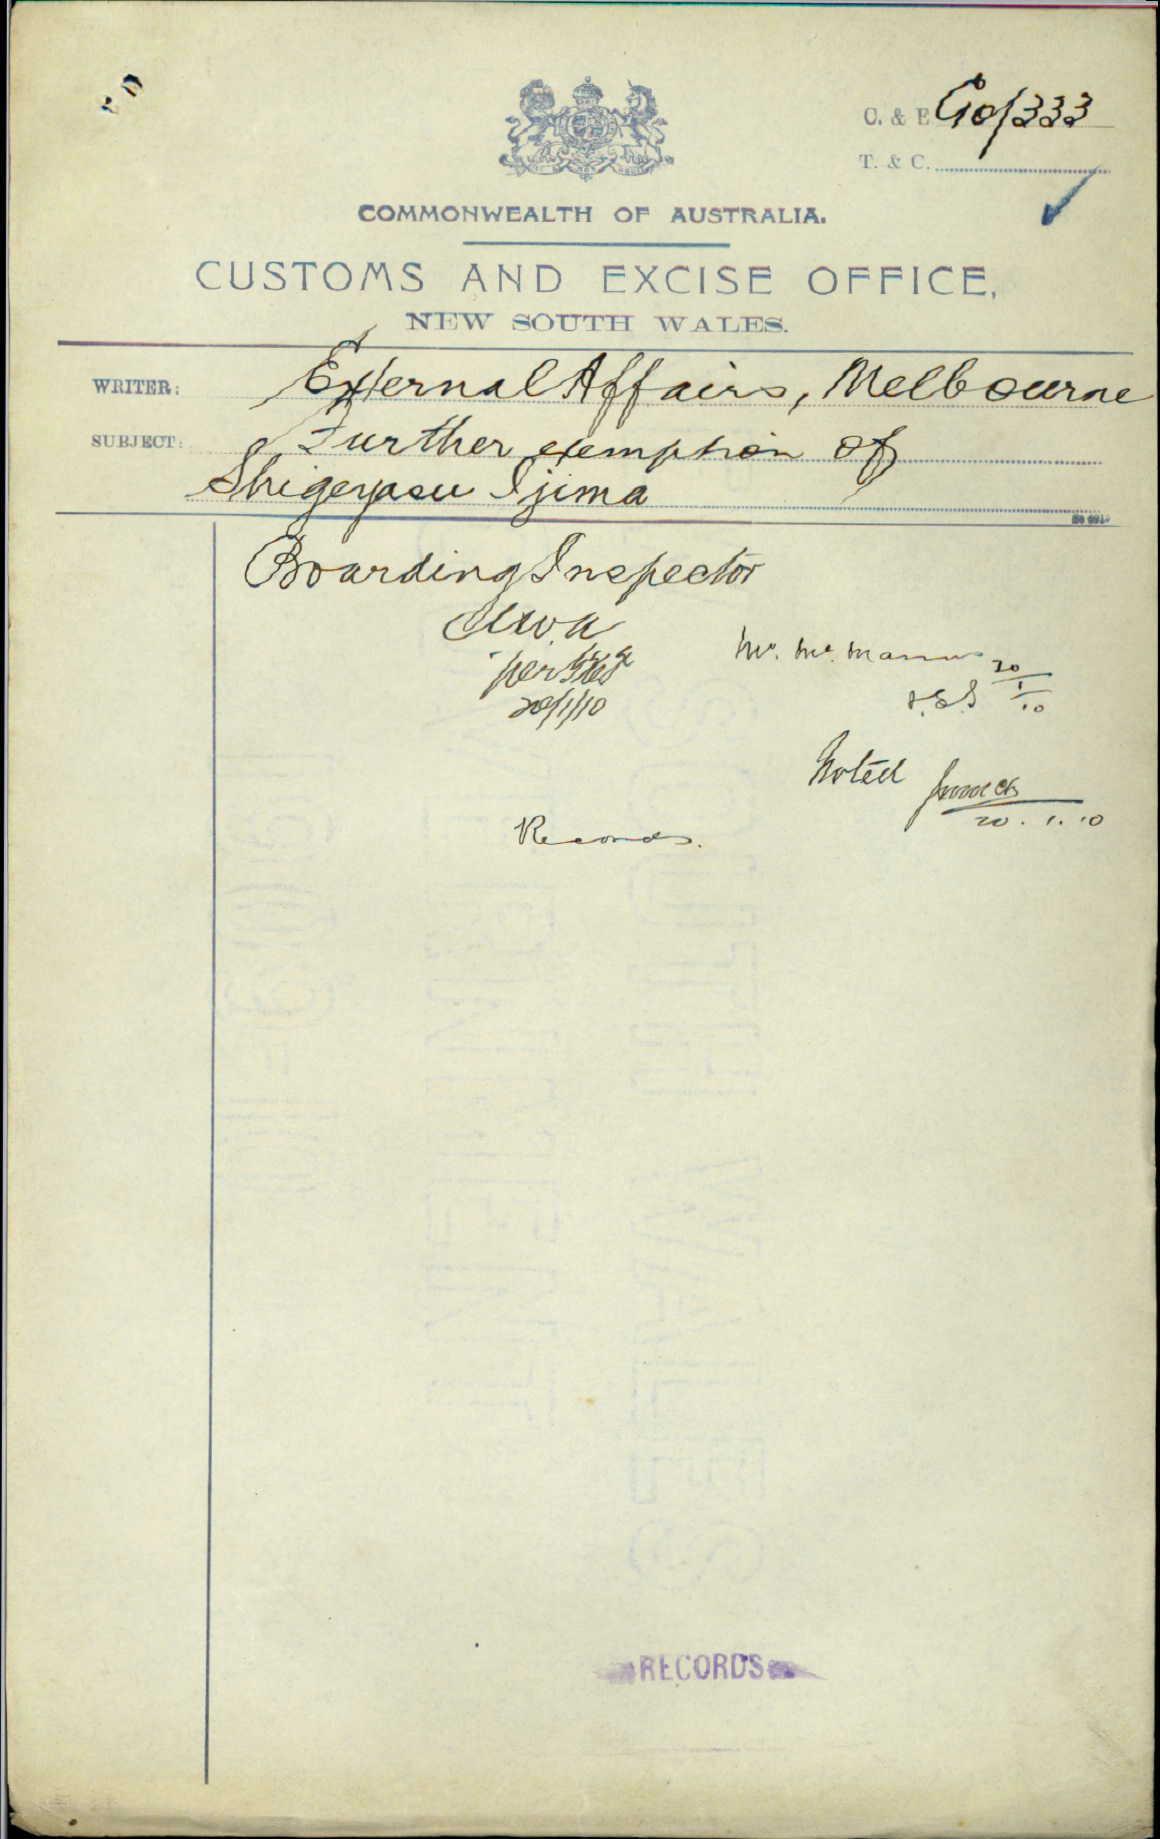 C. & E. G10/333
T. & C.
COMMONWEALTH OF AUSTRALIA.
CUSTOMS AND EXCISE OFFICE,
NEW SOUTH WALES.
WRITER: External Affairs, Melbourne
SUBJECT: Further exemption of
Shigeyasu Ijima
Boarding Inspector
per
20/1/10
Mr. McManus
20
1
10
Noted
20.1.10
Records.
RECORDS